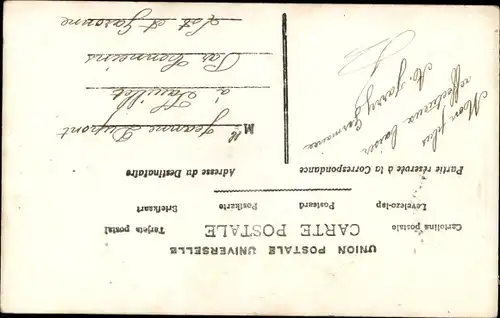 UNION POSTALE UNIVERSELLE
CARTE POSTALE
Cartolina postale Postcard Postkarte Tarjeta postal
Levelezo-lap Briefkaart
Partie réservée à la Correspondance
Adresse du Destinataire
Mon plus
affectueux baiser
Germaine
M lle Jeanne Dupont
à Fauillet
Par Tonneins
Lot et Garonne